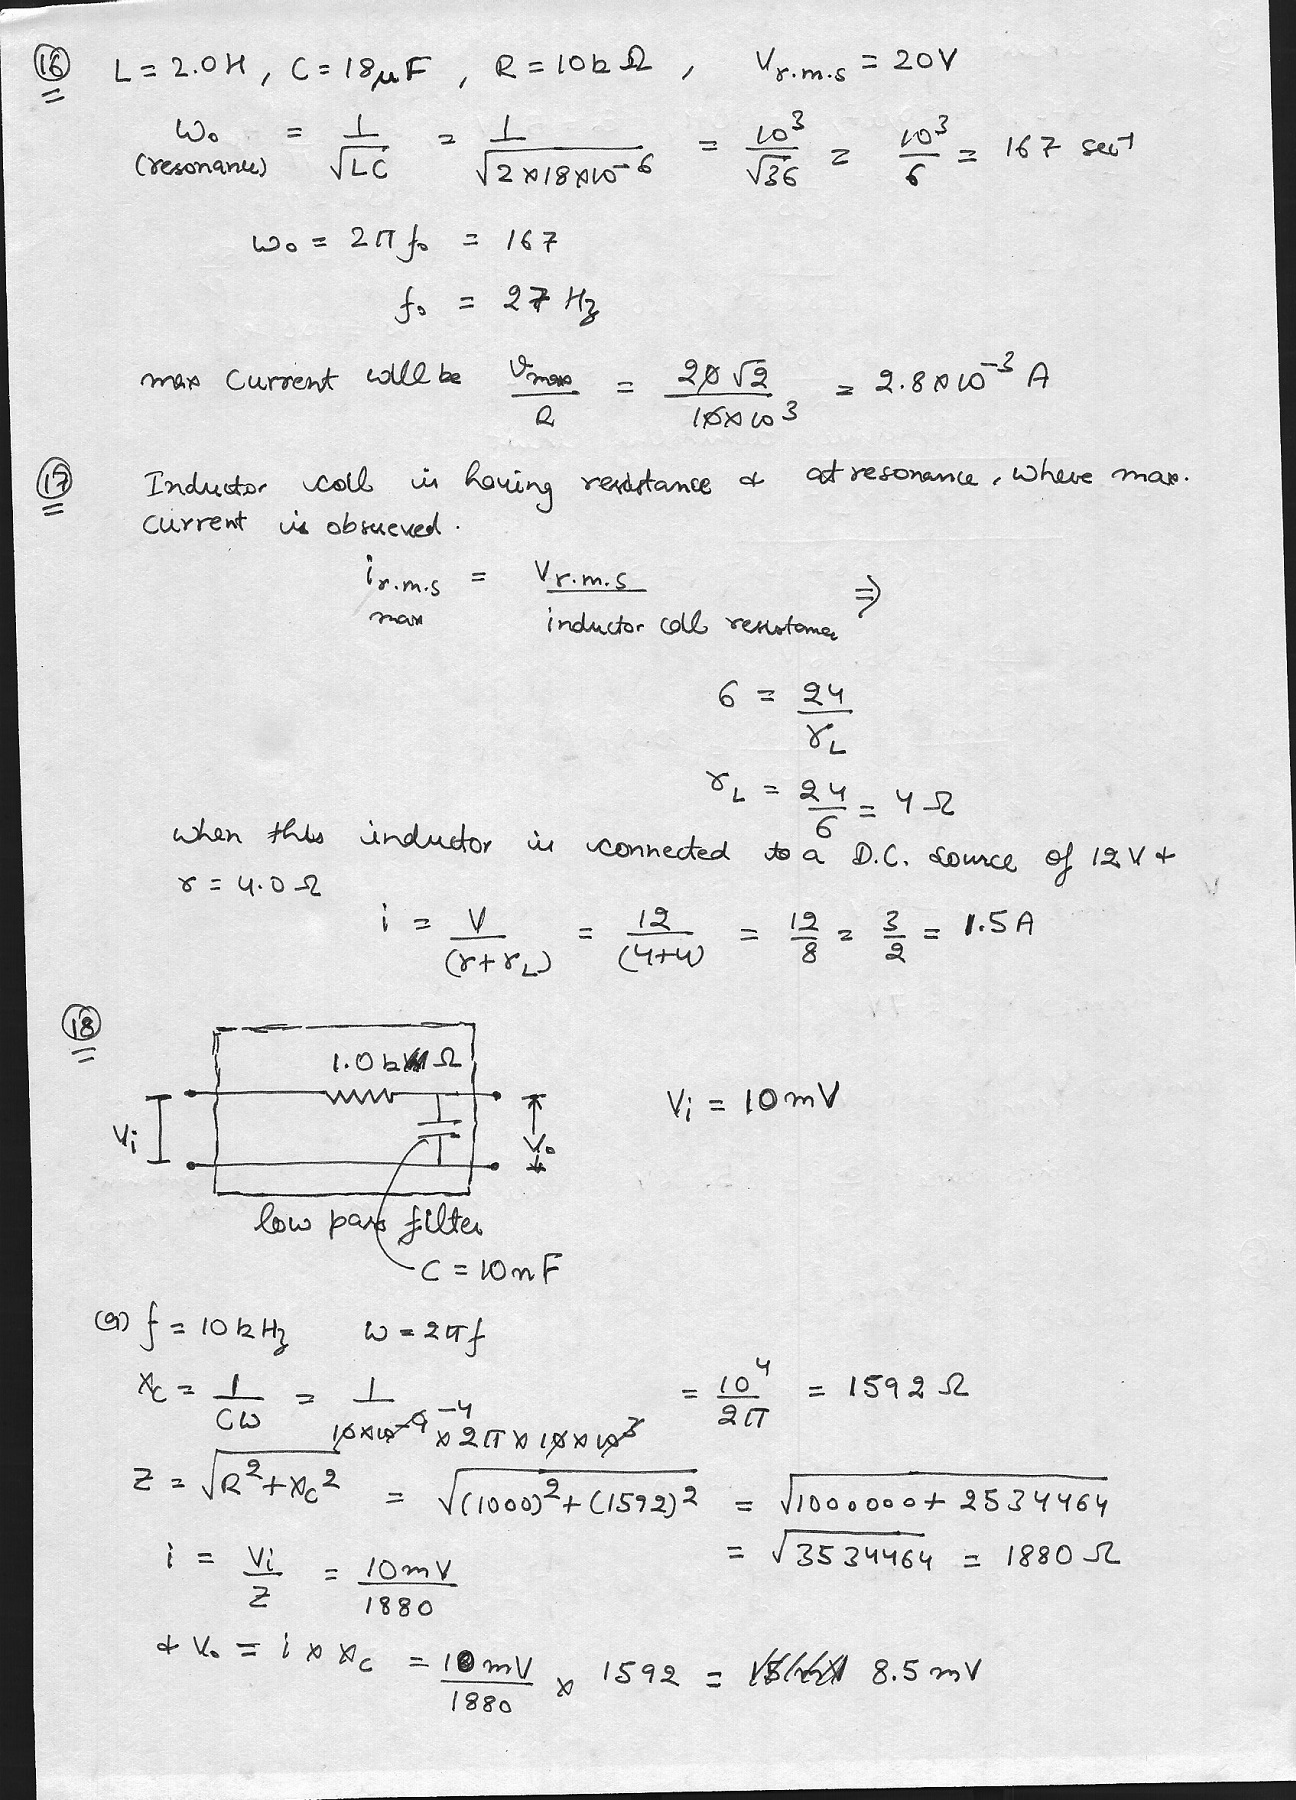 16 L = 2.0H, C = 18μF, R = 10kΩ, Vr.m.s = 20V
ω₀ (resonance) = 1/√LC = 1/√2×18×10⁻⁶ = 10³/√36 = 10³/6 = 167 sec⁻¹
ω₀ = 2πf₀ = 167
f₀ = 27 Hz
max current will be Vmax/R = 20√2/10×10³ = 2.8×10⁻³ A
17 Inductor coil is having resistance & at resonance, where max.
current is obsreved.
ir.m.s max = Vr.m.s/inductor coil resistance ⇒
6 = 24/rL
rL = 24/6 = 4Ω
when this inductor is connected to a D.C. source of 12V &
r = 4.0Ω
i = V/(r+rL) = 12/(4+4) = 12/8 = 3/2 = 1.5A
18
1.0kΩ
Vi = 10mV
Vi
V₀
low pass filter
C = 10nF
(a) f = 10kHz ω = 2πf
Xc = 1/Cω = 1/10×10⁻⁹⁻⁴×2π×10×10³ = 10⁴/2π = 1592Ω
Z = √R²+Xc² = √(1000)²+(1592)² = √1000000+2534464
= √3534464 = 1880Ω
i = Vi/Z = 10mV/1880
& V₀ = i×Xc = 10mV/1880 × 1592 = 8.5mV